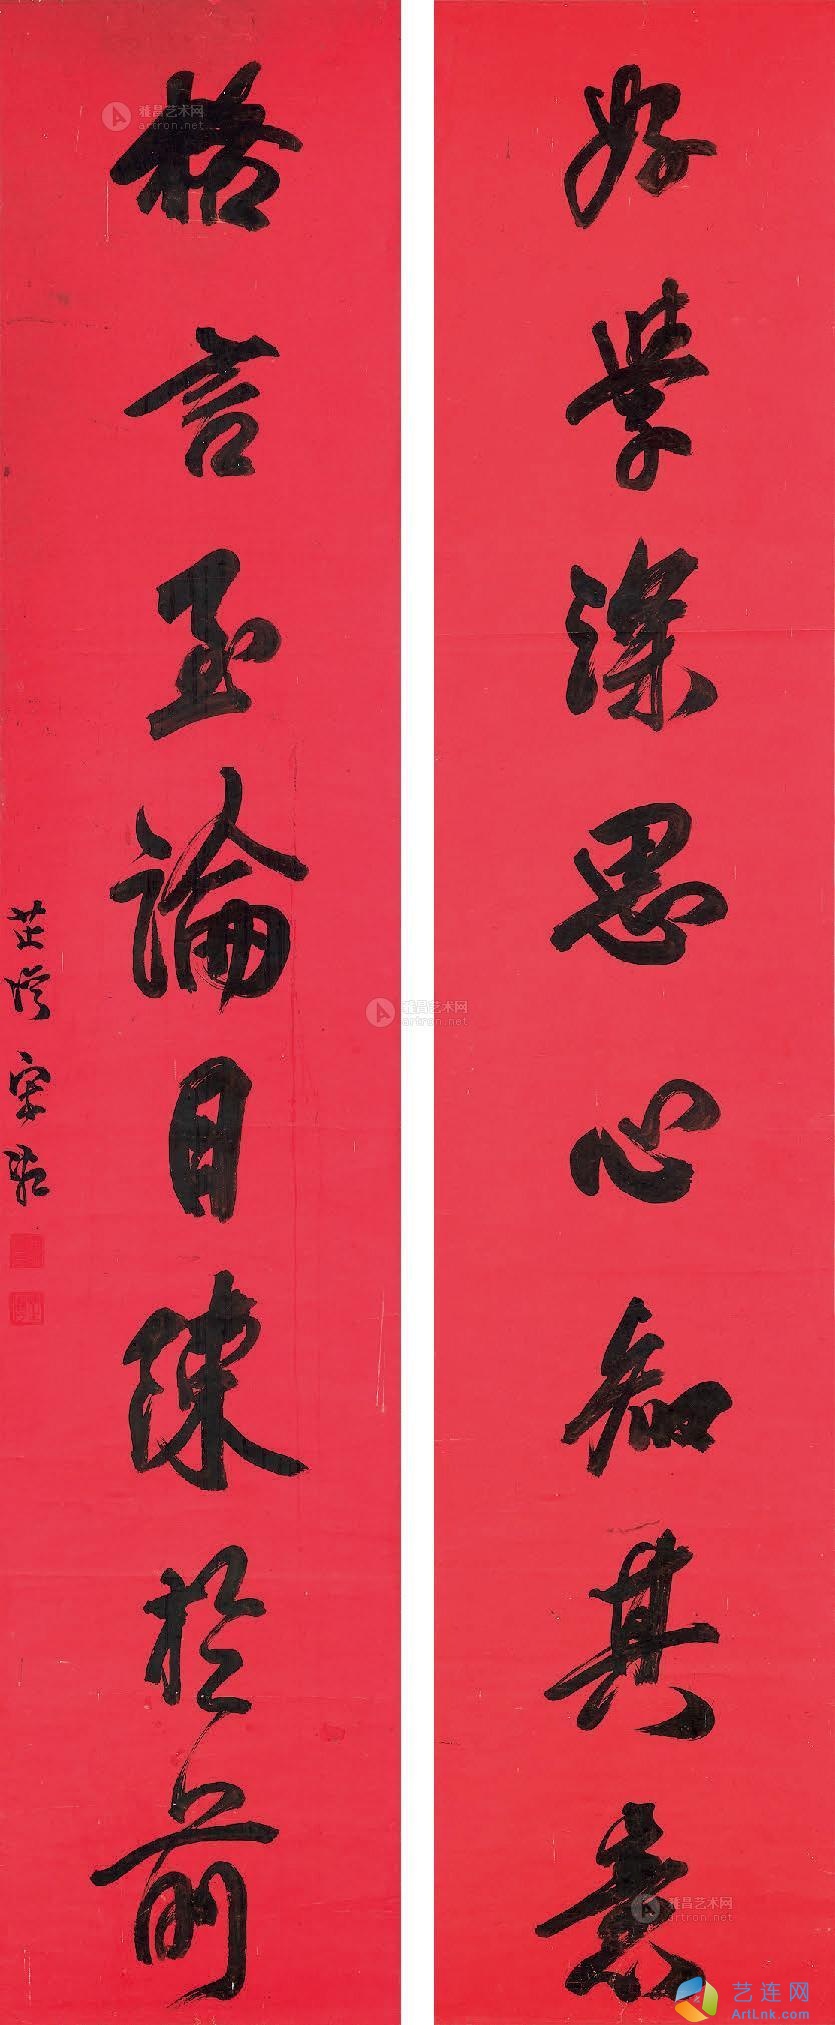 好學深思心知其意
格言至論目陳於前
芷灣宋湘
雅昌艺术网
artron.net
雅昌艺术网
artron.net
雅昌艺术网
artron.net
艺连网
ArtLnk.com